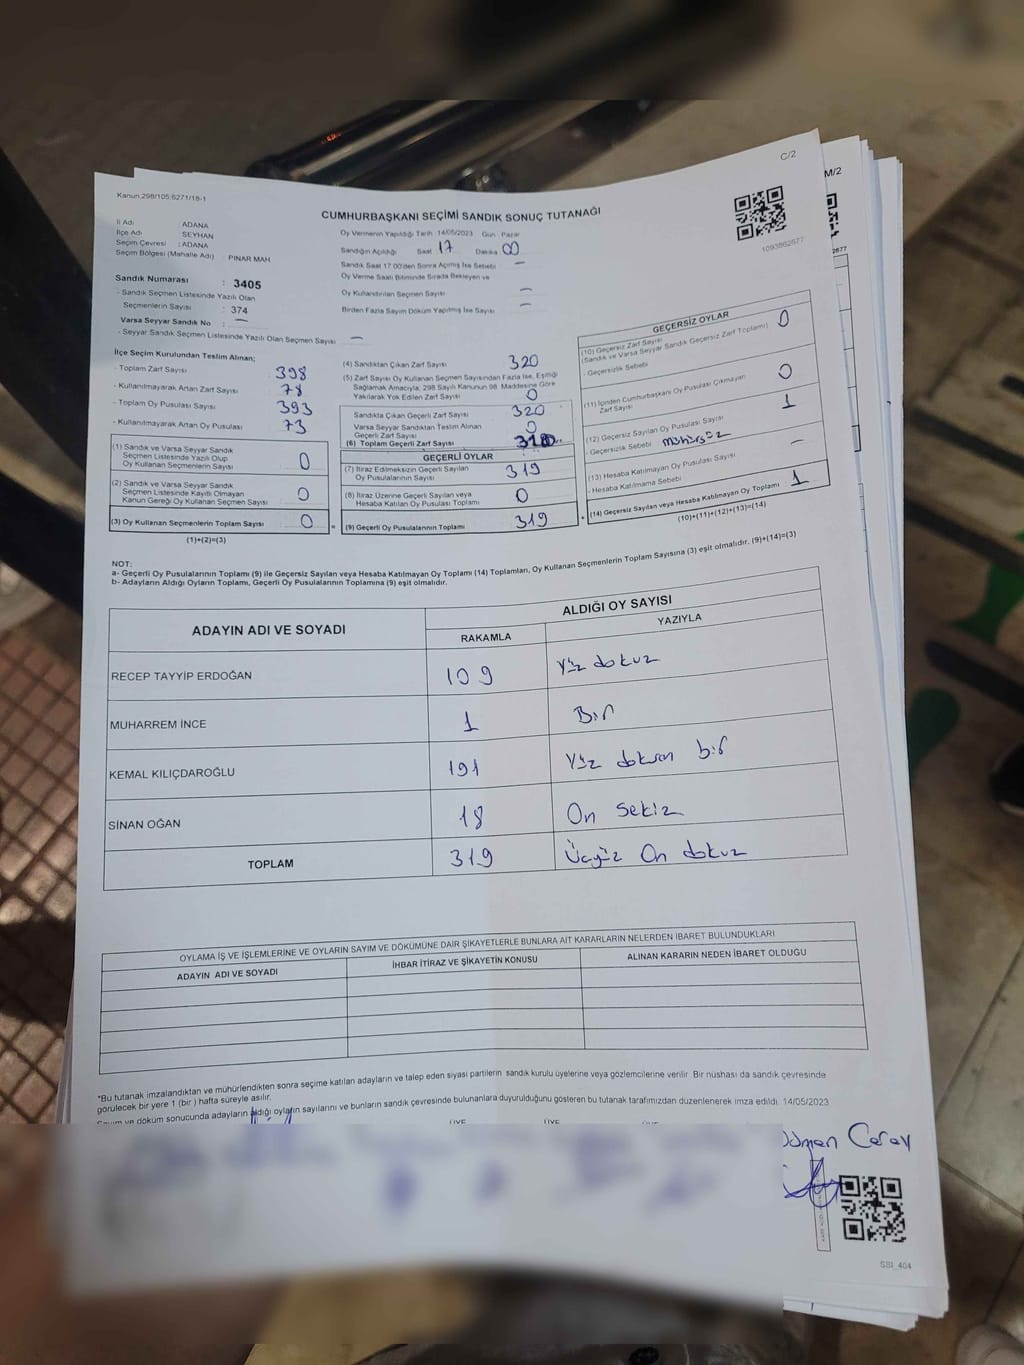 C/2
M/2
Kanun 298/105;6271/18-1
CUMHURBAŞKANI SEÇİMİ SANDIK SONUÇ TUTANAĞI
1093862677
İl Adı : ADANA
İlçe Adı : SEYHAN
Seçim Çevresi : ADANA
Seçim Bölgesi (Mahalle Adı) : PINAR MAH
Sandık Numarası : 3405
- Sandık Seçmen Listesinde Yazılı Olan
Seçmenlerin Sayısı : 374
Varsa Seyyar Sandık No : —
- Seyyar Sandık Seçmen Listesinde Yazılı Olan Seçmen Sayısı —
Oy Vermenin Yapıldığı Tarih : 14/05/2023 Gün : Pazar
Sandığın Açıldığı Saat 17 Dakika 00
Sandık Saat 17.00'den Sonra Açılmış İse Sebebi —
Oy Verme Saati Bitiminde Sırada Bekleyen ve
Oy Kullandırılan Seçmen Sayısı —
Birden Fazla Sayım Döküm Yapılmış İse Sayısı —
İlçe Seçim Kurulundan Teslim Alınan;
- Toplam Zarf Sayısı : 398
- Kullanılmayarak Artan Zarf Sayısı : 78
- Toplam Oy Pusulası Sayısı : 393
- Kullanılmayarak Artan Oy Pusulası : 73
(1) Sandık ve Varsa Seyyar Sandık
Seçmen Listesinde Yazılı Olup
Oy Kullanan Seçmenlerin Sayısı : 0
(2) Sandık ve Varsa Seyyar Sandık
Seçmen Listesinde Kayıtlı Olmayan
Kanun Gereği Oy Kullanan Seçmen Sayısı : 0
(3) Oy Kullanan Seçmenlerin Toplam Sayısı : 0
(1)+(2)=(3)
(4) Sandıktan Çıkan Zarf Sayısı 320
(5) Zarf Sayısı Oy Kullanan Seçmen Sayısından Fazla İse, Eşitliği
Sağlamak Amacıyla; 298 Sayılı Kanunun 98. Maddesine Göre
Yakılarak Yok Edilen Zarf Sayısı 0
Sandıkta Çıkan Geçerli Zarf Sayısı : 320
Varsa Seyyar Sandıktan Teslim Alınan
Geçerli Zarf Sayısı : 0
(6) Toplam Geçerli Zarf Sayısı
GEÇERLİ OYLAR
(7) İtiraz Edilmeksizin Geçerli Sayılan
Oy Pusulalarının Sayısı : 319
(8) İtiraz Üzerine Geçerli Sayılan veya
Hesaba Katılan Oy Pusulası Toplamı : 0
(9) Geçerli Oy Pusulalarının Toplamı : 319
GEÇERSİZ OYLAR
(10) Geçersiz Zarf Sayısı
(Sandık ve Varsa Seyyar Sandık Geçersiz Zarf Toplamı) 0
- Geçersizlik Sebebi
(11) İçinden Cumhurbaşkanı Oy Pusulası Çıkmayan
Zarf Sayısı 0
(12) Geçersiz Sayılan Oy Pusulası Sayısı 1
- Geçersizlik Sebebi mühürsüz
(13) Hesaba Katılmayan Oy Pusulası Sayısı —
- Hesaba Katılmama Sebebi
(14) Geçersiz Sayılan veya Hesaba Katılmayan Oy Toplamı 1
(10)+(11)+(12)+(13)=(14)
NOT:
a- Geçerli Oy Pusulalarının Toplamı (9) ile Geçersiz Sayılan veya Hesaba Katılmayan Oy Toplamı (14) Toplamları, Oy Kullanan Seçmenlerin Toplam Sayısına (3) eşit olmalıdır. (9)+(14)=(3)
b- Adayların Aldığı Oyların Toplamı, Geçerli Oy Pusulalarının Toplamına (9) eşit olmalıdır.
ADAYIN ADI VE SOYADI
ALDIĞI OY SAYISI
RAKAMLA
YAZIYLA
RECEP TAYYİP ERDOĞAN 109 Yüz dokuz
MUHARREM İNCE 1 Bir
KEMAL KILIÇDAROĞLU 191 Yüz doksan bir
SİNAN OĞAN 18 On sekiz
TOPLAM 319 Üçyüz On dokuz
OYLAMA İŞ VE İŞLEMLERİNE VE OYLARIN SAYIM VE DÖKÜMÜNE DAİR ŞİKAYETLERLE BUNLARA AİT KARARLARIN NELERDEN İBARET BULUNDUKLARI
ADAYIN ADI VE SOYADI
İHBAR İTİRAZ VE ŞİKAYETİN KONUSU
ALINAN KARARIN NEDEN İBARET OLDUĞU
*Bu tutanak imzalandıktan ve mühürlendikten sonra seçime katılan adayların ve talep eden siyasi partilerin sandık kurulu üyelerine veya gözlemcilerine verilir. Bir nüshası da sandık çevresinde
görülecek bir yere 1 (bir) hafta süreyle asılır.
Sayım ve döküm sonucunda adayların aldığı oyların sayılarını ve bunların sandık çevresinde bulunanlara duyurulduğunu gösteren bu tutanak tarafımızdan düzenlenerek imza edildi. 14/05/2023
ÜYE
ÜYE
SBI_404